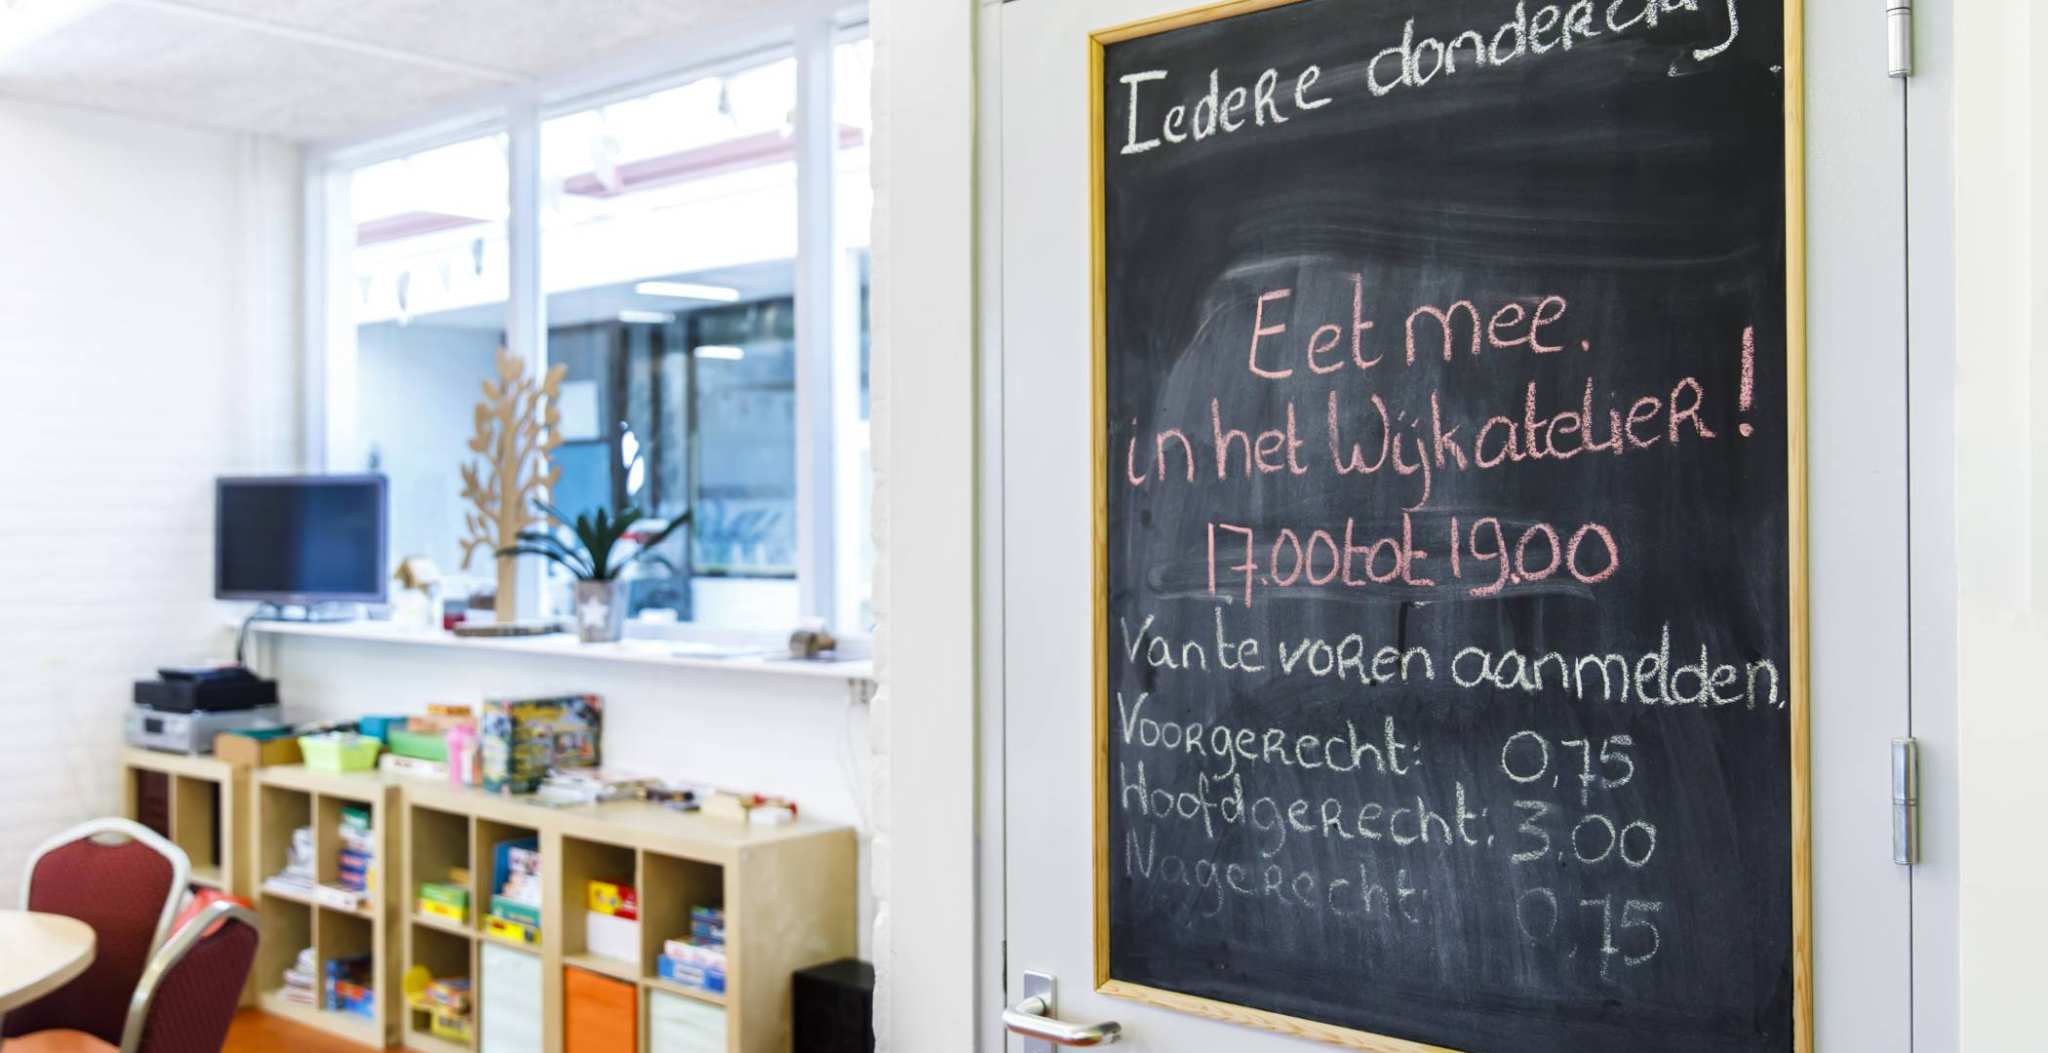 Iedere donderdag
Eet mee.
in het Wijkatelier!
17.00 tot 19.00
Van te voren aanmelden.
Voorgerecht: 0,75
Hoofdgerecht: 3.00
Nagerecht: 0,75